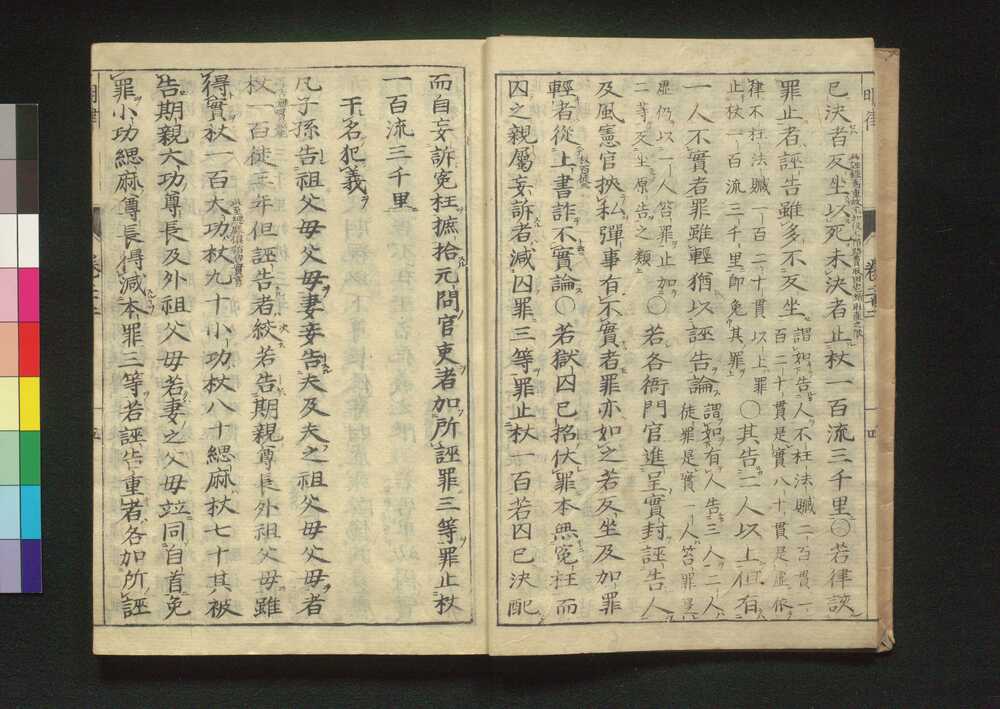 已決者反坐以死未決者止杖一百流三千里○若律該
罪止者誣告雖多不反坐謂如告人不枉法贓二百貫一
百二十貫是實八十貫是虛依
律不枉法贓一百二十貫以上罪
止杖一百流三千里即免其罪○其告二人以上但有
一人不實者罪雖輕猶以誣告論謂如有人告三人二人
徒罪是實一人笞罪是
虛仍以一人笞罪止加
二等反坐原告之類○若各衙門官進呈實封誣告人
及風憲官挾私彈事有不實者罪亦如之若反坐及加罪
輕者從上書詐不實論○若獄囚已招伏罪本無冤枉而
囚之親屬妄訴者減囚罪三等罪止杖一百若囚已決配
而自妄訴冤枉摭拾元問官吏者加所誣罪三等罪止杖
一百流三千里
干名犯義
凡子孫告祖父母父母妻妾告夫及夫之祖父母父母者
杖一百徒三年但誣告者絞若告期親尊長外祖父母雖
得實杖一百大功杖九十小功杖八十緦麻杖七十其被
告期親大功尊長及外祖父母若妻之父母竝同自首免
罪小功緦麻尊長得減本罪三等若誣告重者各加所誣